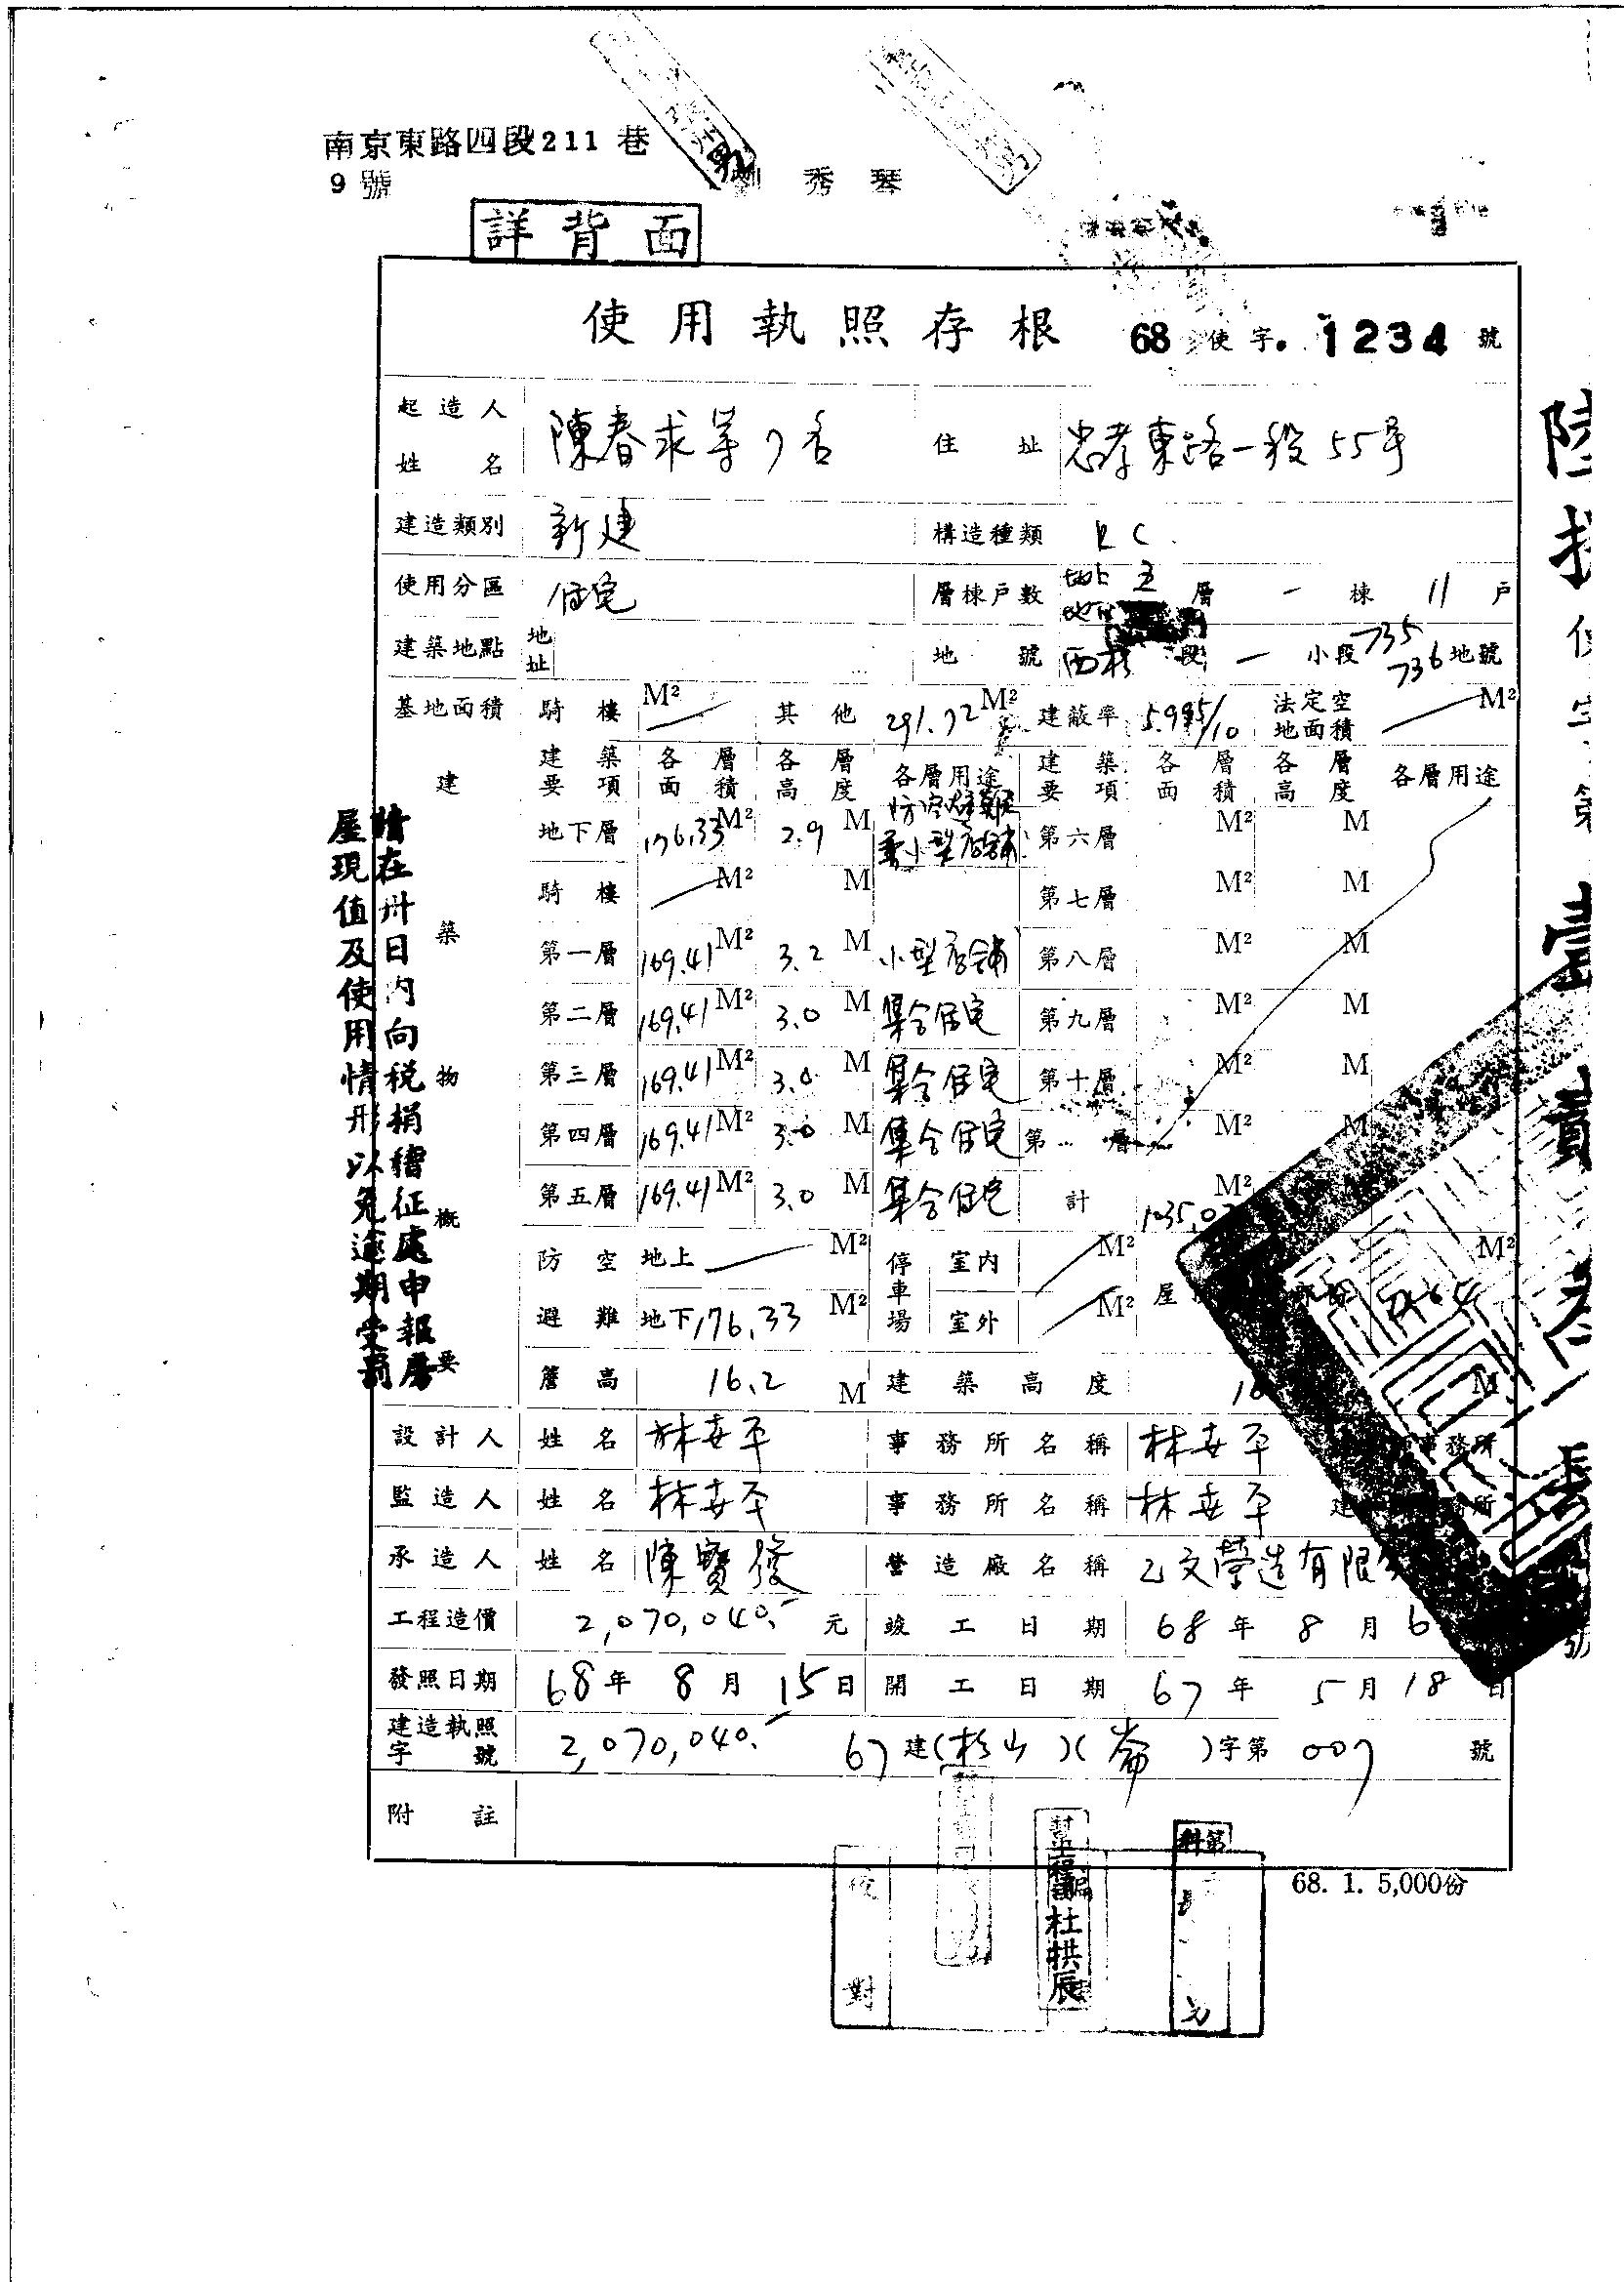 南京東路四段211巷
9號
秀琴
詳背面
使用執照存根 68使字.1234號
起造人姓名 陳春求等7名 住址 忠孝東路一段55號
建造類別 新建 構造種類 RC
使用分區 住宅 層棟戶數 地上五層 一棟 11戶
建築地點 地址 地號 西松段 一小段 735 736地號
基地面積 騎樓 M² 其他 291.72 M² 建蔽率 5.995/10 法定空地面積 M²
建築物概要
建築要項 各層面積 各層高度 各層用途 建築要項 各層面積 各層高度 各層用途
地下層 176.33 M² 2.9 M 防空避難兼小型店舖 第六層 M² M
騎樓 M² M 第七層 M² M
第一層 169.41 M² 3.2 M 小型店舖 第八層 M² M
第二層 169.41 M² 3.0 M 集合住宅 第九層 M² M
第三層 169.41 M² 3.0 M 集合住宅 第十層 M² M
第四層 169.41 M² 3.0 M 集合住宅 第 層 M² M
第五層 169.41 M² 3.0 M 集合住宅 計 M²
防空避難 地上 M² 停車場 室內 M² M²
地下 176.33 M² 室外 M² 屋
簷高 16.2 M 建築高度 M
設計人 姓名 事務所名稱
監造人 姓名 事務所名稱
承造人 姓名 陳寶俊 營造廠名稱 乙文營造有限
工程造價 2,070,040.- 元 竣工日期 68年8月6
發照日期 68年8月15日 開工日期 67年5月18日
建造執照字號 2,070,040.- 67建(松山)(崙)字第007號
附註
請在卅日內向稅捐稽征處申報房
屋現值及使用情形以免逾期受罰
68. 1. 5,000份
校對
杜拱辰